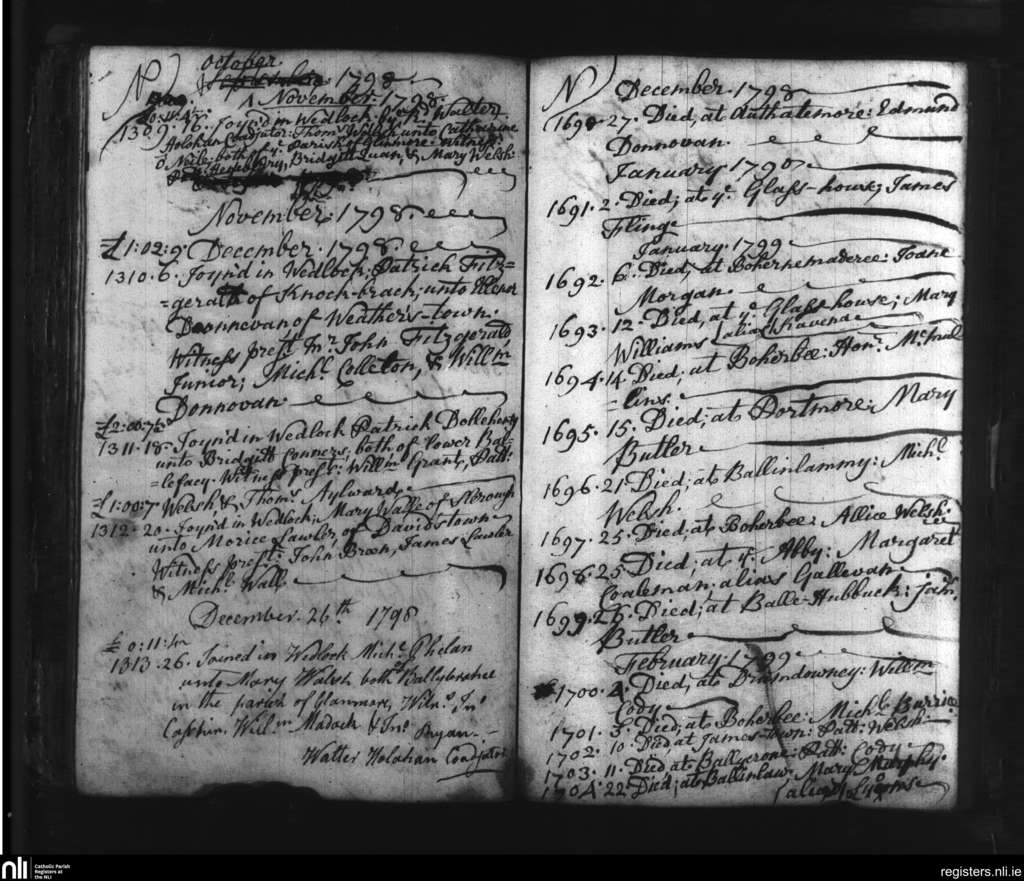 N October
1798
November: 1798.
1309. 16. Joyn'd in Wedlock by Walter
Holohan Coadjutor: Thoms. Welsh unto Catharine
O Neile: both of ye. Parish of Glanmore: Witness:
Bridgtt Quan; & Mary Welsh
November: 1798.
£1:02:9 December. 1798.
1310. 6. Joyn'd in Wedlock; Patrick Fitz=
=gerald of Knock-brack; unto Ellenor
Donnevan of Weathers-town.
Witness prest. Jnr. John Fitzgerald
Junior; Michl. Colleton, & Willm.
Donnovan
£2:00:7½
1311. 18. Joyn'd in Wedlock Patrick Dolleherty
unto Bridgitt Conners, both of lower Bal=
=lefacy. Witness prest: Willm Grant, Patt:
£1:00:7 Welsh & Thoms. Aylward
1312. 20. Joyn'd in Wedlock; Mary Wall of Slerough
unto Morice Lawler, of Davidstown
Witness prest: John Breen, James Lawler
& Michl. Wall
December. 26th 1798
£0:11:4½
1313. 26. Joined in Wedlock Michl. Phelan
unto Mary Walsh both Ballybrahee
in the parish of Glanmore, Witns. Jns.
Willm Madock & Jns. Ryan.
Walter Holahan Coadjator
N December. 1798
1690. 27. Died, at Authatemore: Edmund
Donnovan.
January. 1790
1691. 2. Died; at ye. Glass-house; James
Fling
January. 1799
1692. 6. Died; at Bohernemaderee: Joane
Morgan.
1693. 12. Died, at ye. Glass house; Mary
Williams [alias Kavena
1694. 14. Died, at Boherbee: Honr. McMul
=lins.
1695. 15. Died; at Portmore: Mary
Butler
1696. 21. Died; at Ballinlammy: Michl.
Welsh.
1697. 25. Died; at Boherbee: Allice Welsh.
1698. 25. Died; at ye. Abby: Margaret
Coaleman alias Gallevan
1699. 26. Died; at Balle-Hubbuck: Joan.
Butler
February. 1799
1700. 2. Died; at Drumdowney: Willm
Cody
1701. 3. Died; at Boherbee: Michl. Barrie
1702. 10. Died at James-town: Patt: Welsh
1703. 11. Died at Ballycrone: Patt: Cody
1704. 22. Died; at Ballinlaw: Mary Murphy.
[alias Lyons
nli
Catholic Parish
Registers at
the NLI
registers.nli.ie